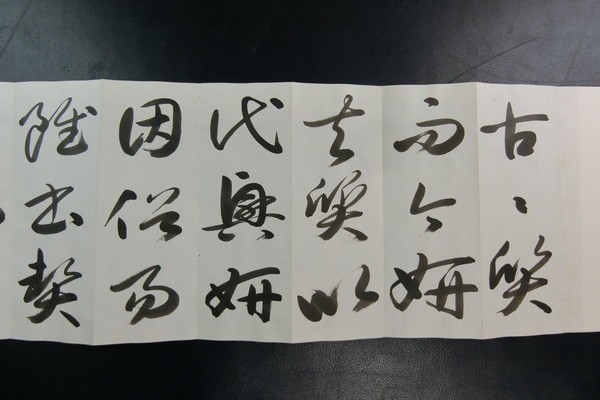 古〻質
而今妍
夫質以
代興妍
因俗易
雖書契